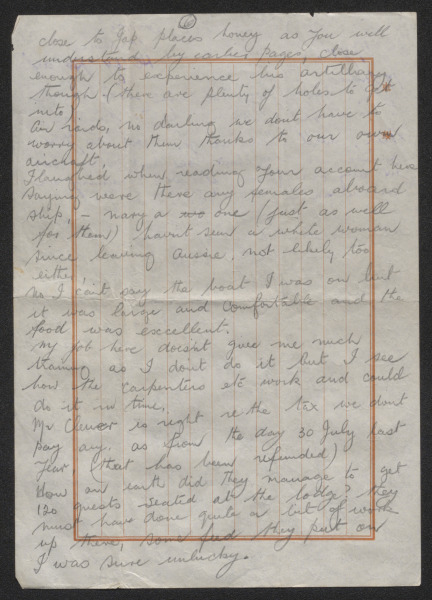 6
close to Jap places honey as you well
understand by earlier pages, close
enough to experience his artillery
though - (there are plenty of holes to get
into)
Air raids, no darling we dont have to
worry about them thanks to our own
aircraft.
I laughed when reading your account here
saying were there any females aboard
ship, - nary a one (just as well
for them) havnt seen a white woman
since leaving Aussie, not likely too
either.
No I can't say the boat I was on but
it was large and comfortable and the
food was excellent.
My job here doesn't give me much
training as I dont do it but I see
how the carpenters etc work and could
do it in time.
Mr is right re the tax we dont
pay any. as from the day 30 July last
year, (that has been refunded)
How on earth did they manage to get
120 guests seated at the lodge? they
must have done quite a bit of work
up there, some feed they put on
I was sure unlucky.